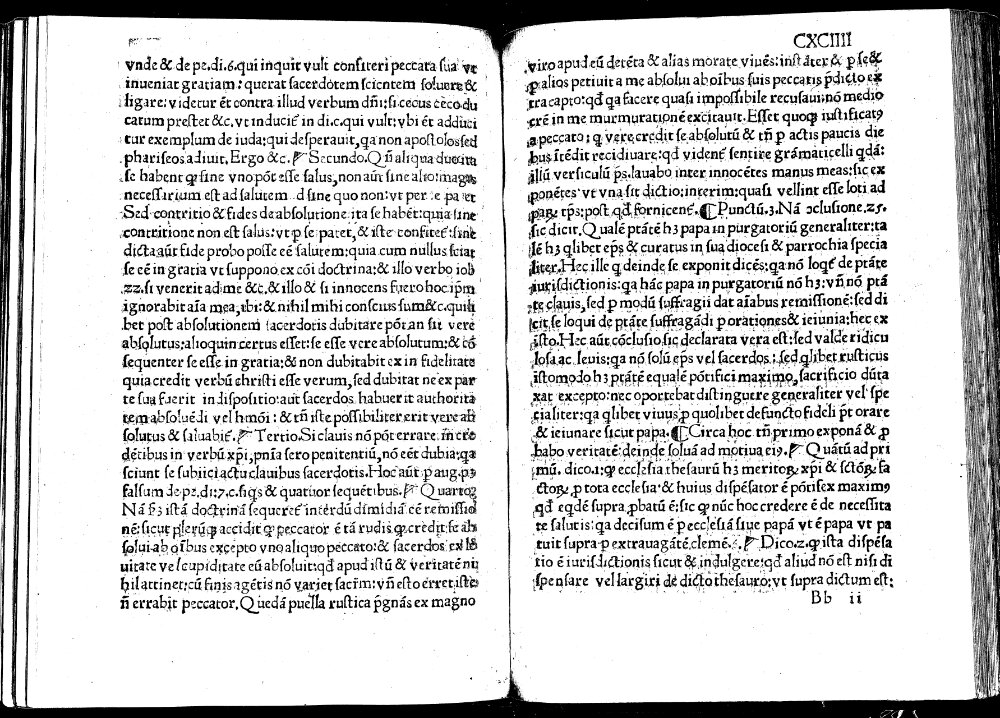 vnde & de pe.di.6.qui inquit vult confiteri peccata sua vt
inueniat gratiam: querat sacerdotem scientem soluere &
ligare; videtur ēt contra illud verbum dn̄i: si cecus ceco du
catum prestet &c. vt inducit̄ in di.c.qui vult: vbi ēt adduci
tur exemplum de iuda: qui desperauit, q̄a non apostolos sed
phariseos adiuit, Ergo &c. Secundo. Qn̄ aliqua duo ita
se habent ꝙ sine vno pōt esse salus, non aūt sine alio: magis
necessarium est ad salutem id sine quo non: vt per se patet
Sed contritio & fides de absolutione ita se habēt: quia sine
contritione non est salus: vt ꝑ se patet, & iste confitet̄: sine
dicta aūt fide probo posse eē salutem: quia cum nullus sciat
se eē in gratia vt suppono ex cōi doctrina: & illo verbo iob
22. si venerit ad me &c. & illo & si innocens fuero hoc ipm̄
ignorabit aīa mea, ibi: & nihil mihi conscius sum &c. quili
bet post absolutionem sacerdotis dubitare pōt an sit vere
absolutus; alioquin certus esset: se esse vere absolutum: & cō
sequenter se esse in gratia: & non dubitabit ex infidelitate
quia credit verbū christi esse verum, sed dubitat ne ex par
te sua fuerit indispositio: aut sacerdos habuerit authorita
tem absoluēdi vel hmōi: & tn̄ iste possibiliter erit vere ab
solutus & saluabit̄. Tertio. Si clauis nō pōt errare in cre
dētibus in verbū xp̄i, pn̄ia sero penitentiū, nō eēt dubia: q̄a
sciunt se subiici actu clauibus sacerdotis. Hoc aūt ꝑ aug. pꝫ
falsum de pe, di: 7.c. si q̄s & quatuor sequētibus. Quarto
Nā ẜꝫ istā doctrinā sequeret̄ interdū dimidiā eē remissio
nē: sicut plerūqꝫ accidit ꝙ peccator ē tā rudis ꝙ credit se ab
solui ab oībus excepto vno aliquo peccato: & sacerdos ex le
uitate vel cupiditate eū absoluit: qd̄ apud istū & veritatē ni
hil attinet: cū finis agētis nō variet sacr̄m: vn̄ esto erret iste
n̄ errabit peccator. Quedā puella rustica p̄gnās ex magno
CXCIIII
viro apud eū detēta & alias morate viuēs: instāter & ꝑ se &
ꝑ alios petiuit a me absolui ab oībus suis peccatis p̄dicto ex
tra capto: qd̄ q̄a facere quasi impossibile recusaui: nō medio
crē in me murmurationē excitauit. Esset quoqꝫ iustificatꝰ
a peccato; q vere credit se absolutū & tn̄ ꝑ actis paucis die
bus ītēdit recidiuare: qd̄ vident̄ sentire grāmaticelli qdā:
illū versiculū ps. lauabo inter innocētes manus meas: sic ex
ponētes vt vna sit dictio; interim: quasi vellint esse loti ad
paꝝ tp̄s: post qd̄ fornicent̄. Punctū.3. Nā ↄclusione. 25.
sic dicit. Qualē ptātē hꝫ papa in purgatoriū generaliter: ta
lē hꝫ qlibet ep̄s & curatus in sua diocesi & parrochia specia
liter. Hec ille q deinde se exponit dicēs: q̄a nō loqt̄ de ptāte
iurisdictionis: q̄a hāc papa in purgatoriū nō hꝫ: vn̄ nō ptā
te clauis, sed ꝑ modū suffragii dat aīabus remissionē: sed di
cit se loqui de ptāte suffragādi ꝑ orationes & ieiunia; hec ex
isto. Hec aūt cōclusio sic declarata vera est: sed valde ridicu
losa ac leuis: q̄a nō solū ep̄s vel sacerdos; sed qlibet rusticus
istomodo hꝫ ptātē equalē pōtifici maximo, sacrificio dūta
xat excepto: nec oportebat distinguere generaliter vel spe
cialiter: q̄a qlibet viuus ꝑ quolibet defuncto fideli pt̄ orare
& ieiunare sicut papa. Circa hoc tn̄ primo exponā & ꝑ
babo veritatē: deinde soluā ad motiua eiꝰ. Quātū ad pri
mū. dico.1: ꝙ ecclesia thesaurū hꝫ meritoꝝ xp̄i & sctōꝝ fa
ctoꝝ ꝑ tota ecclesia & huius dispēsator ē pōtifex maximꝰ
qd̄ eqdē supra, ꝓbatū ē: sic ꝙ nūc hoc credere ē de necessita
te salutis: q̄a decisum ē ꝑ ecclesiā siue papā vt ē papa vt pa
tuit supra ꝑ extrauagātē, clemē. 6. Dico.2. ꝙ ista dispēsa
tio ē iurisdictionis sicut & indulgere: qd̄ aliud nō est nisi di
spensare vel largiri de dicto thesauro; vt supra dictum est:
Bb ii